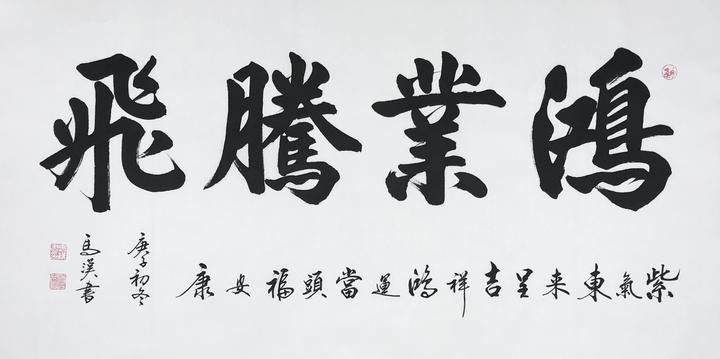 鴻業騰飛
紫氣東来呈吉祥鴻運當頭福安康
庚子初冬
馬漢書